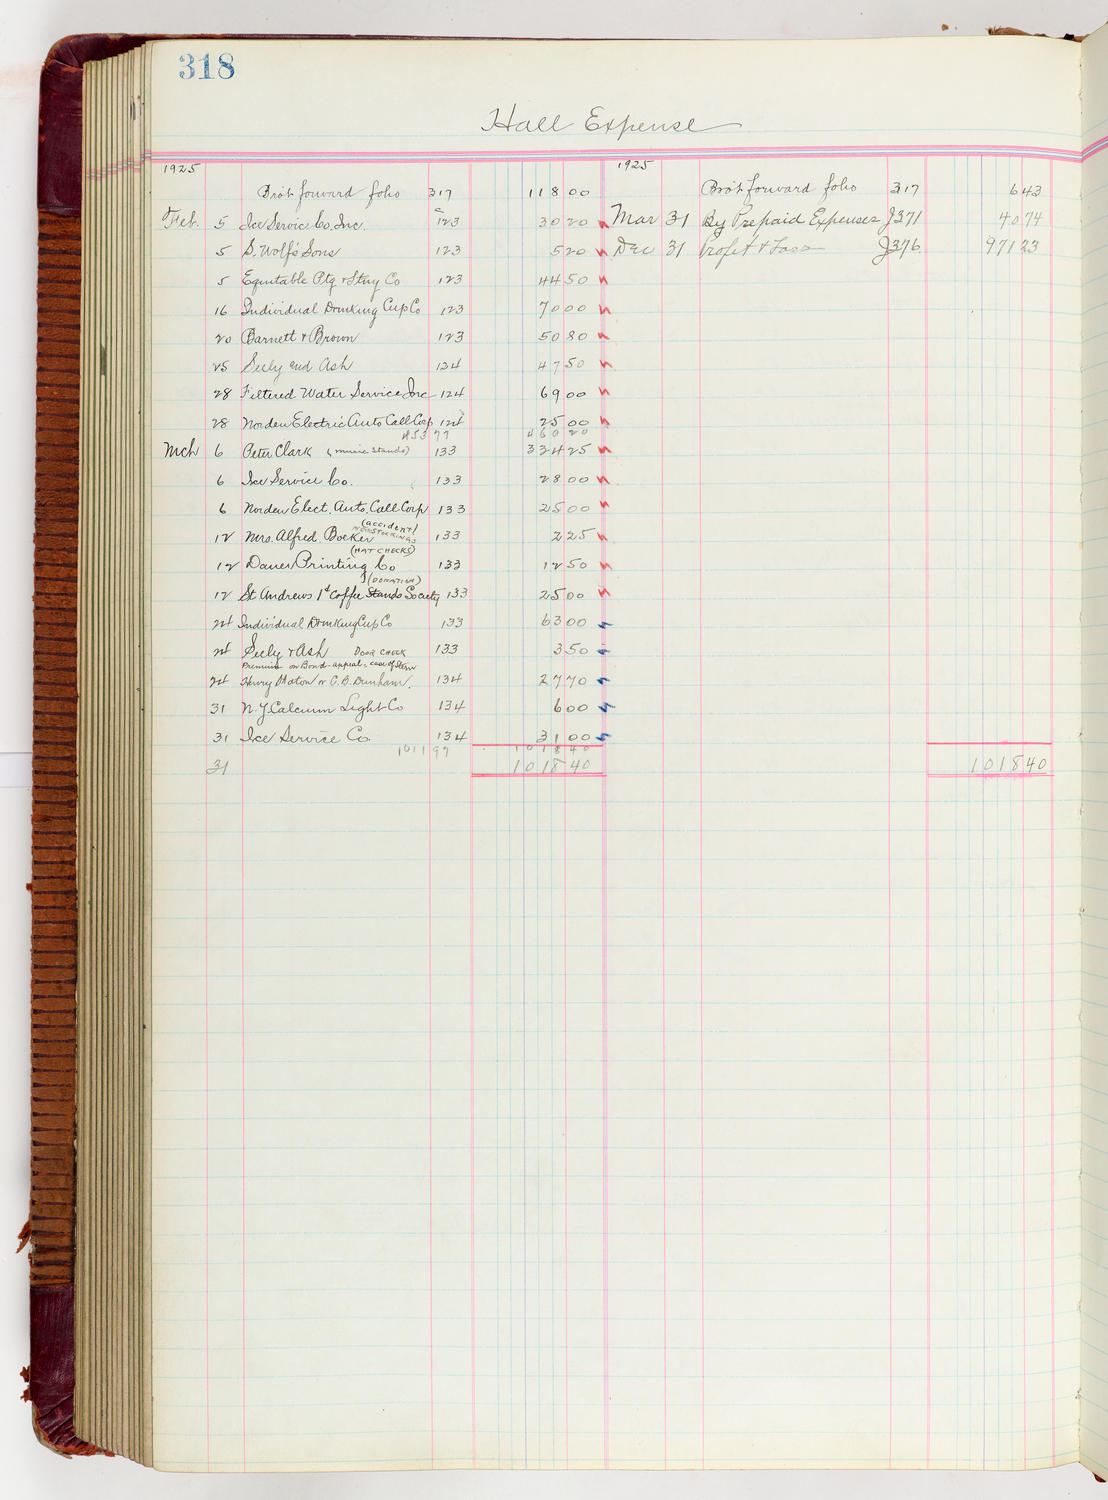 318
Hall Expense
1925
Bro't forward folio 317 118 00
Feb. 5 Ice Service Co. Inc. 123 30 20
5 S. Wolf's Sons 123 5 20
5 Equitable Ptg & Stny Co 123 44 50
16 Individual Drinking Cup Co 123 70 00
20 Barnett & Brown 123 50 80
25 Seely and Ash 124 47 50
28 Filtered Water Service Inc 124 69 00
28 Norden Electric Auto Call Corp 124 25 00
453 77 460 20
Mch 6 Peter Clark (music stands) 133 334 25
6 Ice Service Co. 133 28 00
6 Norden Elect. Auto. Call Corp 133 25 00
(accident)
12 Mrs. Alfred Bocker stockings 133 2 25
(HAT CHECKS)
12 Dauer Printing Co 133 12 50
(DONATION)
12 St Andrews 1¢ Coffee Stands Society 133 25 00
24 Individual Drinking Cup Co 133 63 00
24 Seely & Ash DOOR CHECK 133 3 50
Premium on Bond - appeal - case of Stern
24 Henry Moton or C. B. Dunham. 134 27 70
31 N.Y. Calcium Light Co 134 6 00
31 Ice Service Co. 134 31 00
1011 97 1018 40
31 1018 40
1925
Bro't forward folio 317 6 43
Mar 31 By Prepaid Expenses J371 40 74
Dec 31 Profit & Loss J376 971 23
1018 40